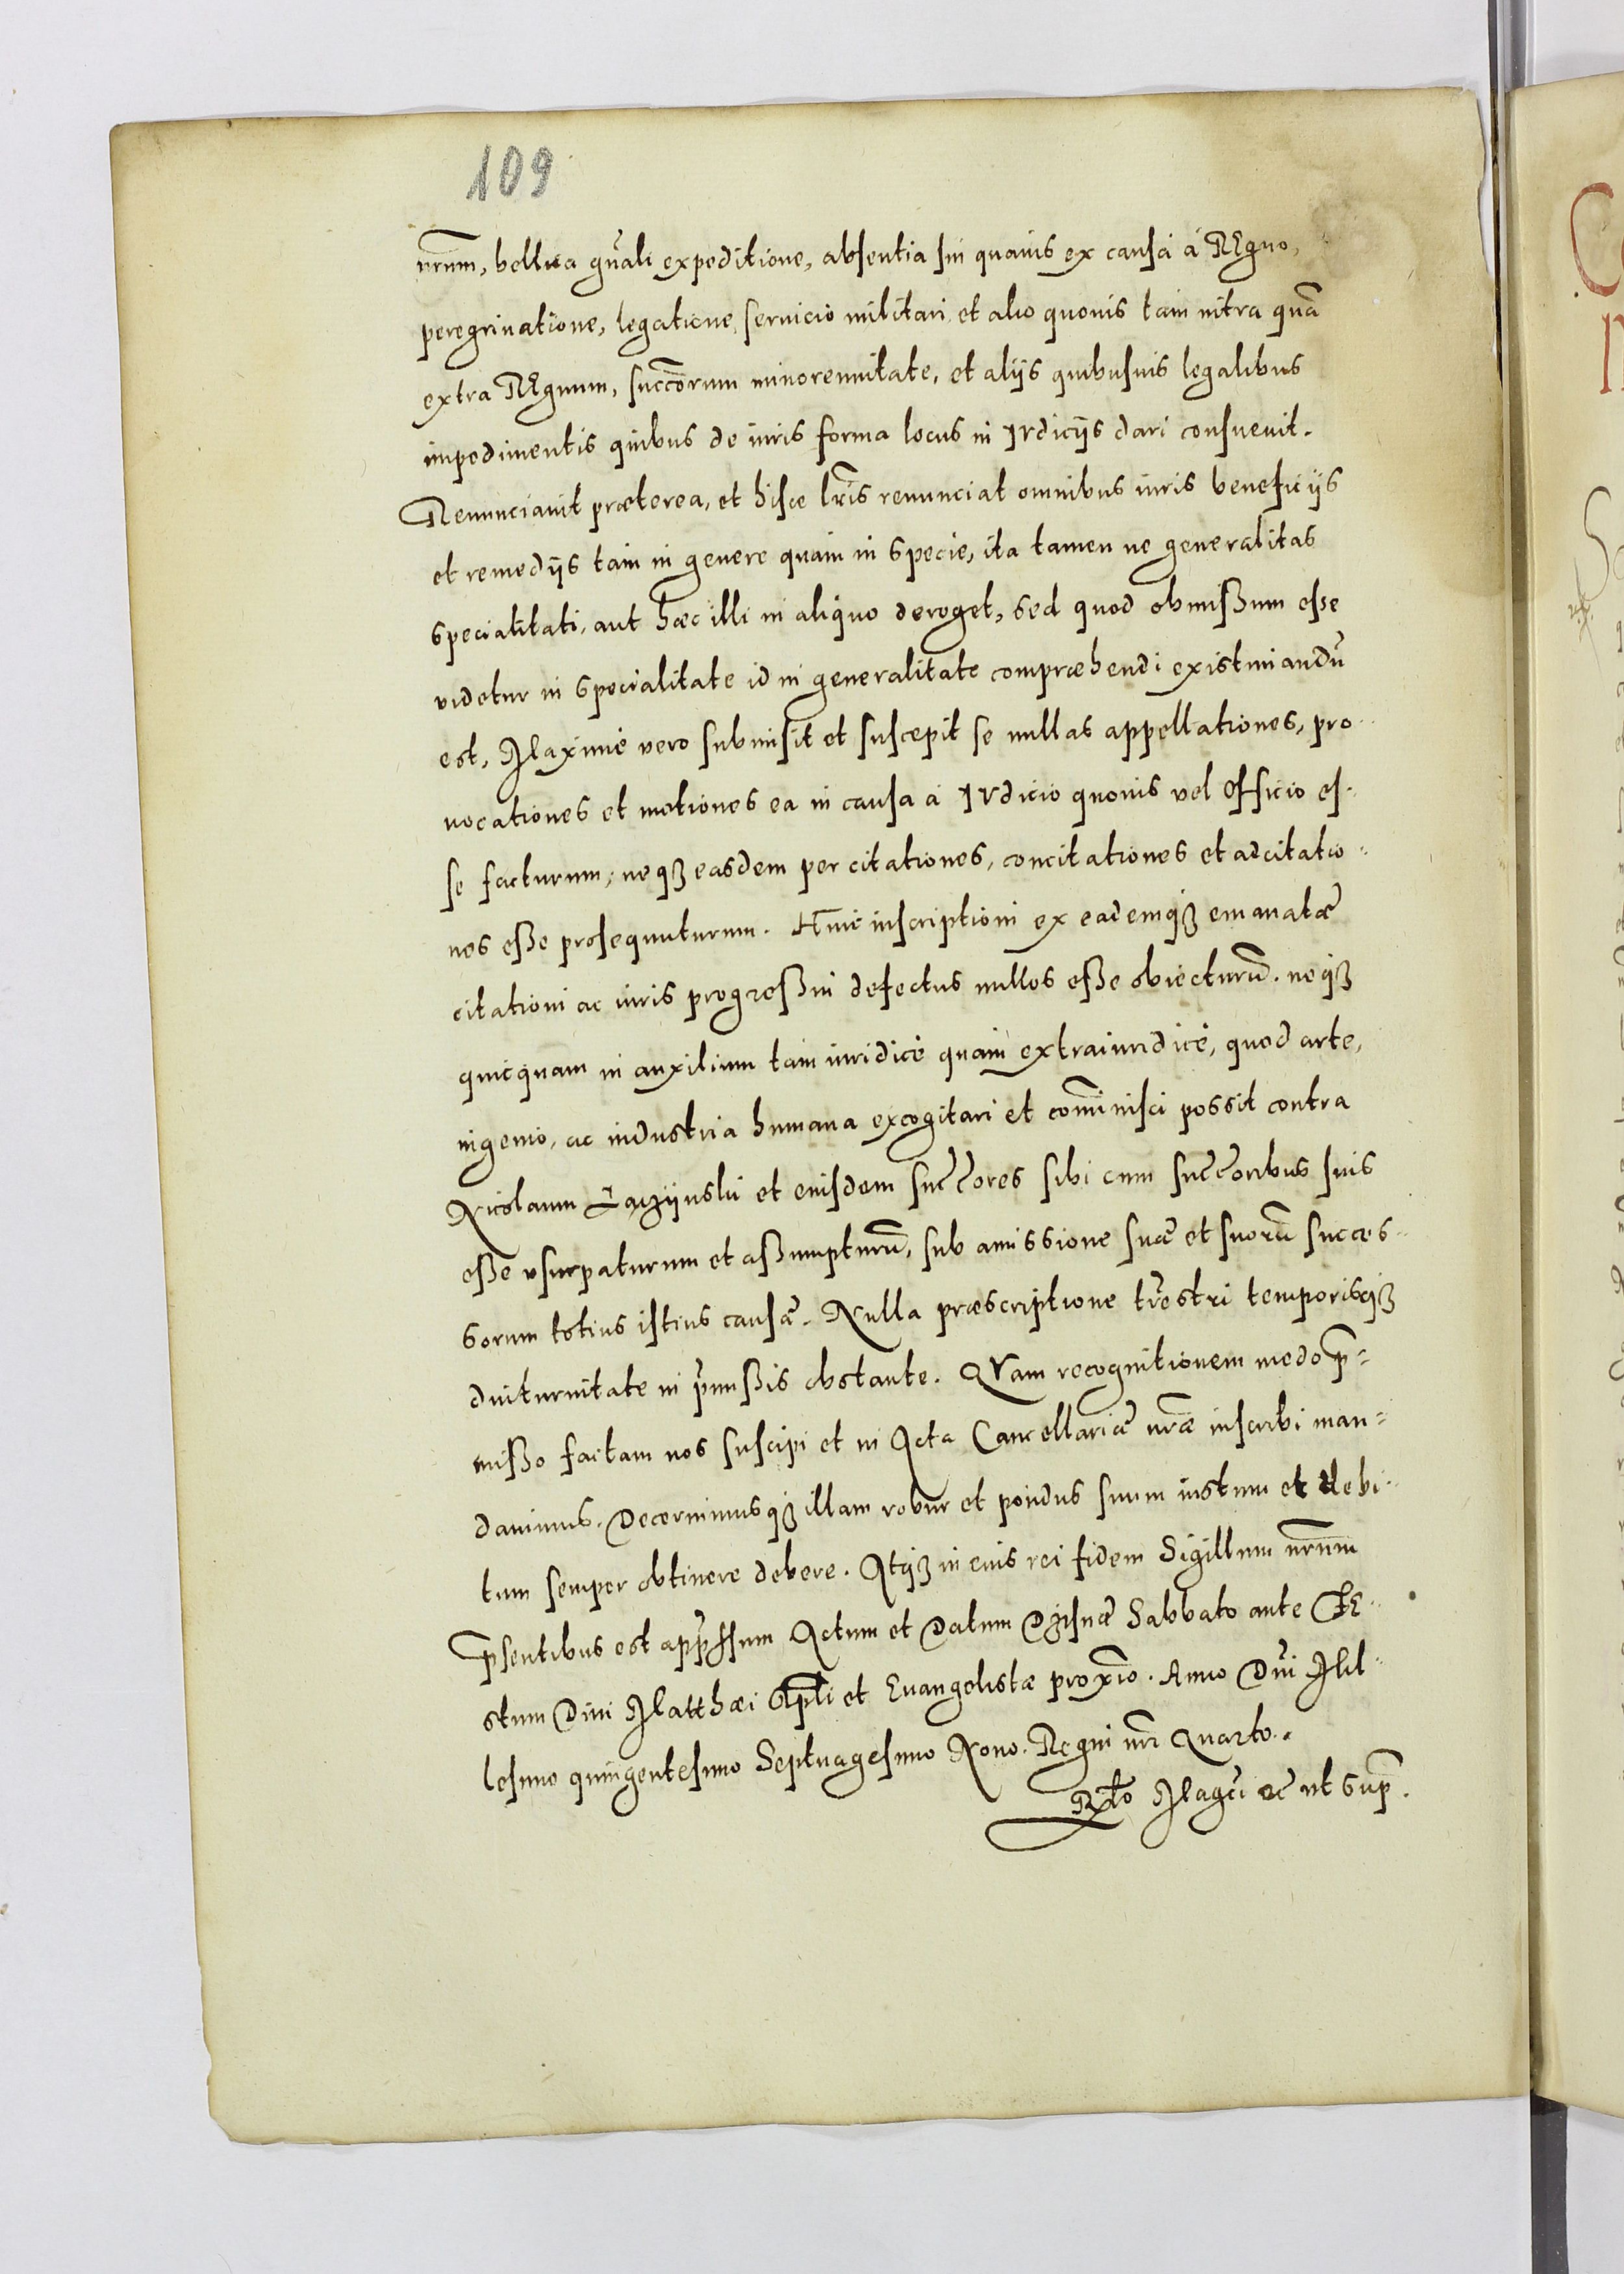 109
nrum, bellica gnali expeditione, absentia sui quauis ex causa à REgno,
peregrinatione, legatione, seruicio militari, et alio quouis tam intra quã
extra REgnum, succorum minorennitate, et aliis quibusuis legalibus
impedimentis quibus de iuris forma locus in IVdiciis dari consueuit.
Renunciauit præterea, et hisce lris renunciat omnibus iuris beneficiis
et remediis tam in genere quam in specie, ita tamen ne generalitas
specialitati, aut hæc illi in aliquo deroget, sed quod obmißum esse
videtur in specialitate id in generalitate compræhendi existimandũ
est, Maximè vero submisit et suscepit se nullas appellationes, pro-
uocationes et motiones ea in causa à IVdicio quouis vel Officio es-
se facturum, neqз easdem per citationes, concitationes et adcitatio-
nes eße prosequuturum. Huic inscriptioni ex eademqз emanatæ
citationi ac iuris progreßui defectus nullos eße obiecturũ. neqз
quicquam in auxilium tam iuridicè quam extraiuridicè, quod arte,
ingenio, ac industria humana excogitari et cominisci possit contra
Nicolaum Lazÿnski et eiusdem succores sibi cum succoribus suis
eße vsurpaturum et aßumpturũ, sub amissione suæ et suorũ succes-
sorum totius istius causæ. Nulla præscriptione trestri temporisqз
diuturnitate in pmißis obstante. QVam recognitionem modo p-
mißo factam nos suscipi et in Acta Cancellariæ nræ inscribi man-
dauimus. Decernimusqз illam robur et pondus suum iustum et debi-
tum semper obtinere debere. Atqз in eius rei fidem Sigillum nrum
psentibus est appssum Actum et Datum Dzisnæ Sabbato ante FE-
stum Diui Matthæi Apli et Euangelistæ proximo. Anno Dni Mil-
lesimo quingentesimo Septuagesimo Nono. Regni nri Quarto.
Rlo Magci &c vt sup.